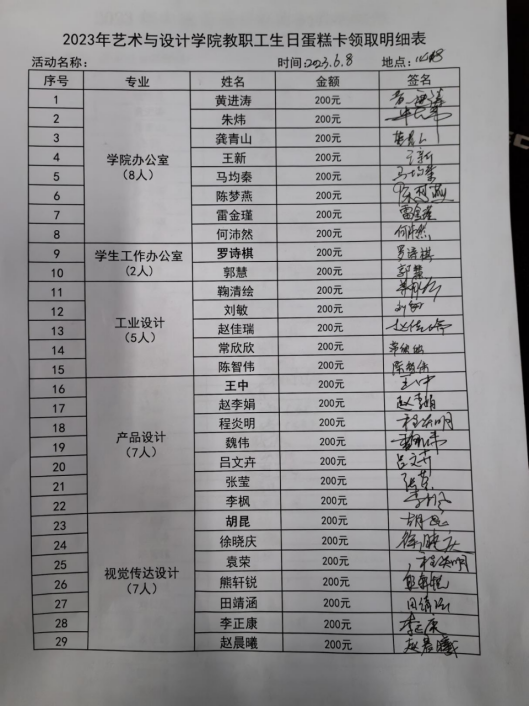 2023年艺术与设计学院教职工生日蛋糕卡领取明细表
活动名称： 时间：2023.6.8 地点：
序号 专业 姓名 金额 签名
学院办公室（8人）
1 黄进涛 200元
2 朱炜 200元
3 龚青山 200元
4 王新 200元 王新
5 马均秦 200元
6 陈梦燕 200元 陈梦燕
7 雷金瑾 200元 雷金瑾
8 何沛然 200元 何沛然
学生工作办公室（2人）
9 罗诗棋 200元 罗诗棋
10 郭慧 200元 郭慧
工业设计（5人）
11 鞠清绘 200元
12 刘敏 200元 刘敏
13 赵佳瑞 200元
14 常欣欣 200元
15 陈智伟 200元 陈智伟
产品设计（7人）
16 王中 200元 王中
17 赵李娟 200元 赵李娟
18 程炎明 200元 程炎明
19 魏伟 200元
20 吕文卉 200元 吕文卉
21 张莹 200元 张莹
22 李枫 200元 李枫
视觉传达设计（7人）
23 胡昆 200元 胡昆
24 徐晓庆 200元 徐晓庆
25 袁荣 200元 程炎明
26 熊轩锐 200元
27 田靖涵 200元 田靖涵
28 李正康 200元 李正康
29 赵晨曦 200元 赵晨曦